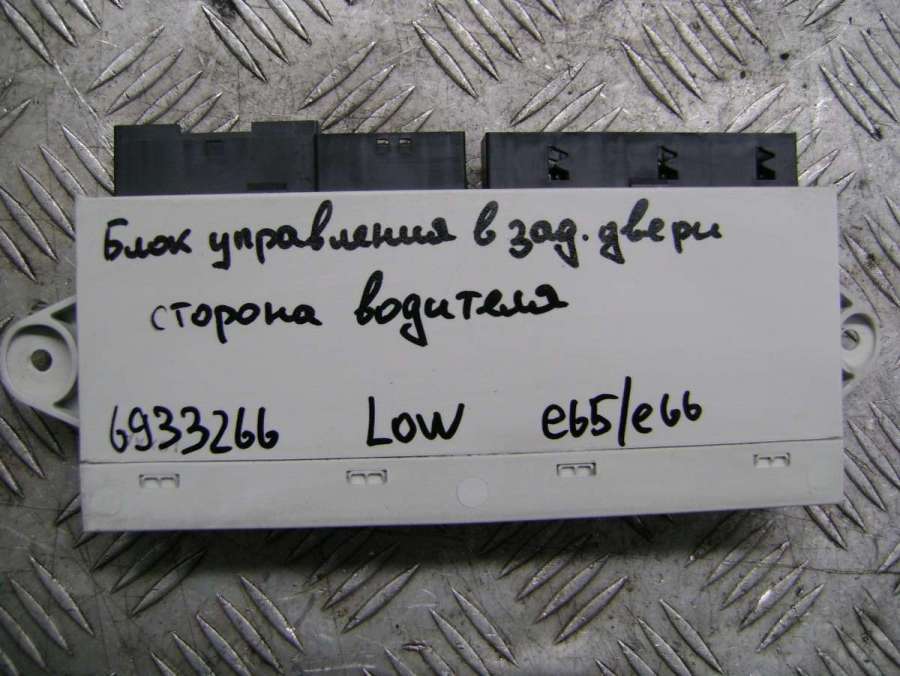 Блок управления в зад. двери
сторона водителя
6933266 Low e65/e66